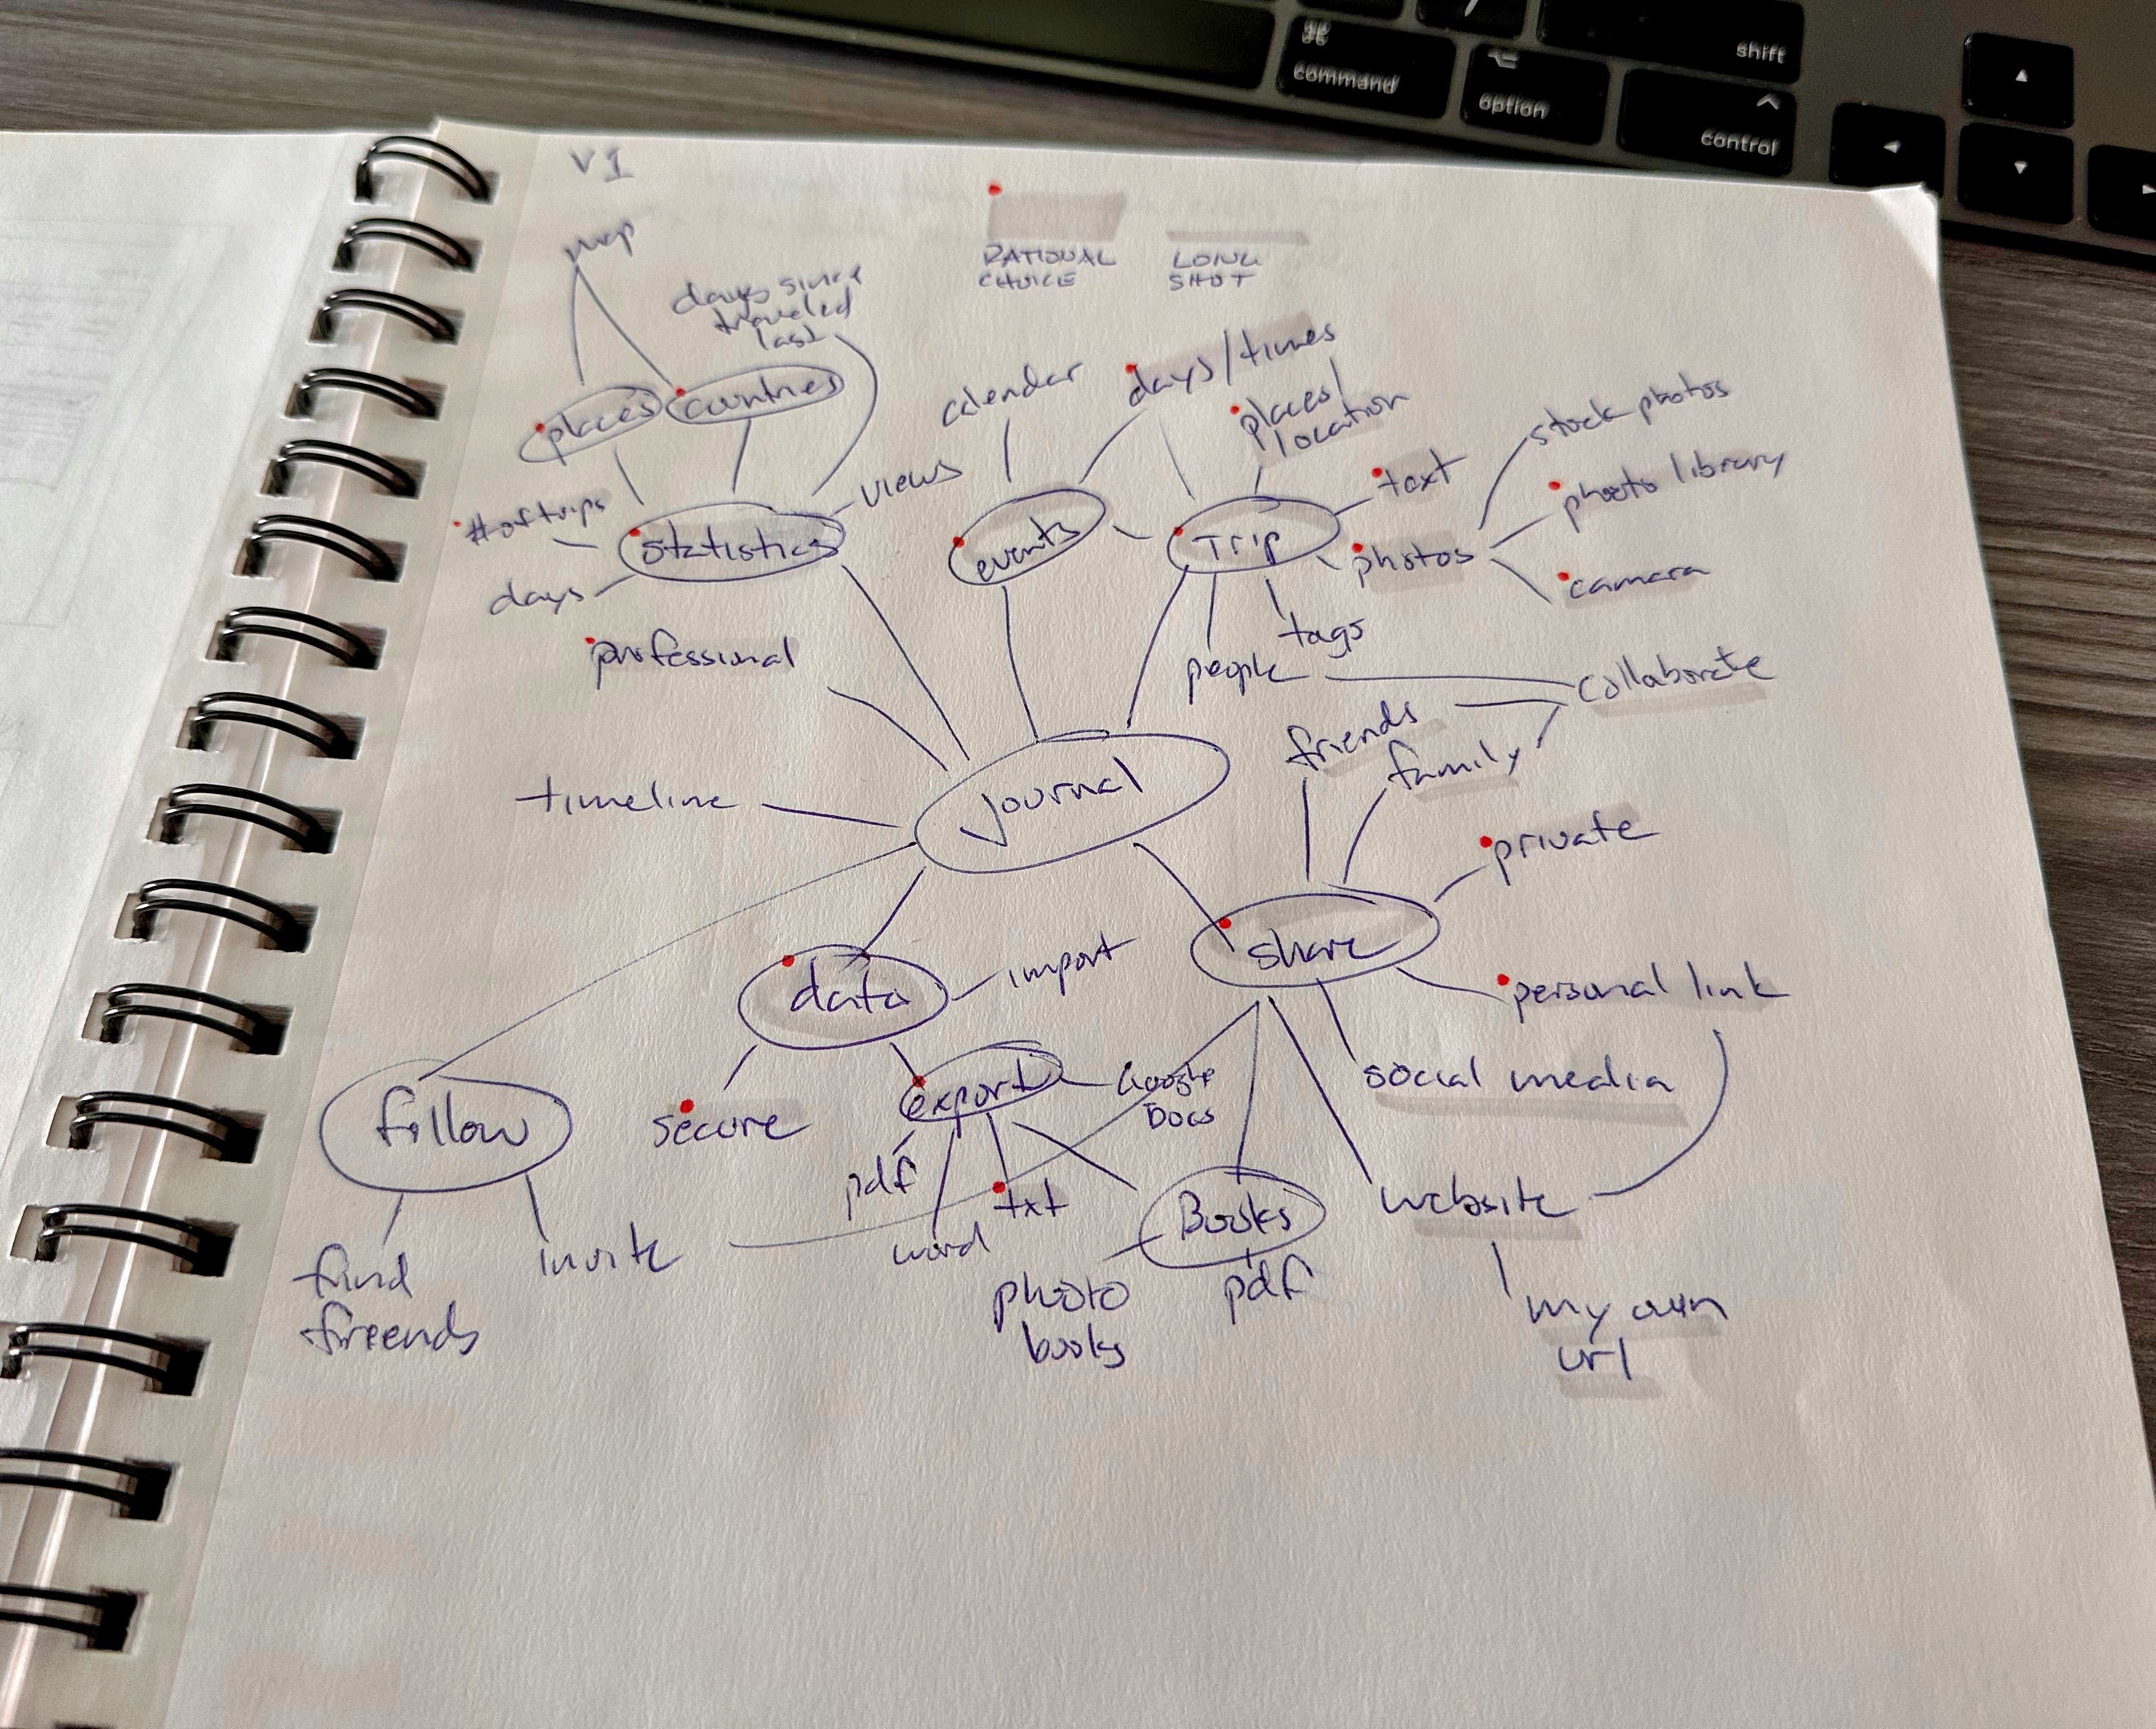 ⌘
command
⌥
option
shift
^
control
V1
map
RATIONAL
CHOICE
LONG
SHOT
days since
traveled
last
places
countries
calendar
days/times
places/
location
stock photos
views
text
photo library
# of trips
statistics
events
Trip
photos
camara
days
professional
tags
people
collaborate
friends
family
timeline
Journal
private
data
import
share
personal link
follow
secure
export
Google
Docs
social media
pdf
txt
word
Books
website
find
fireends
invite
photo
books
pdf
my own
url